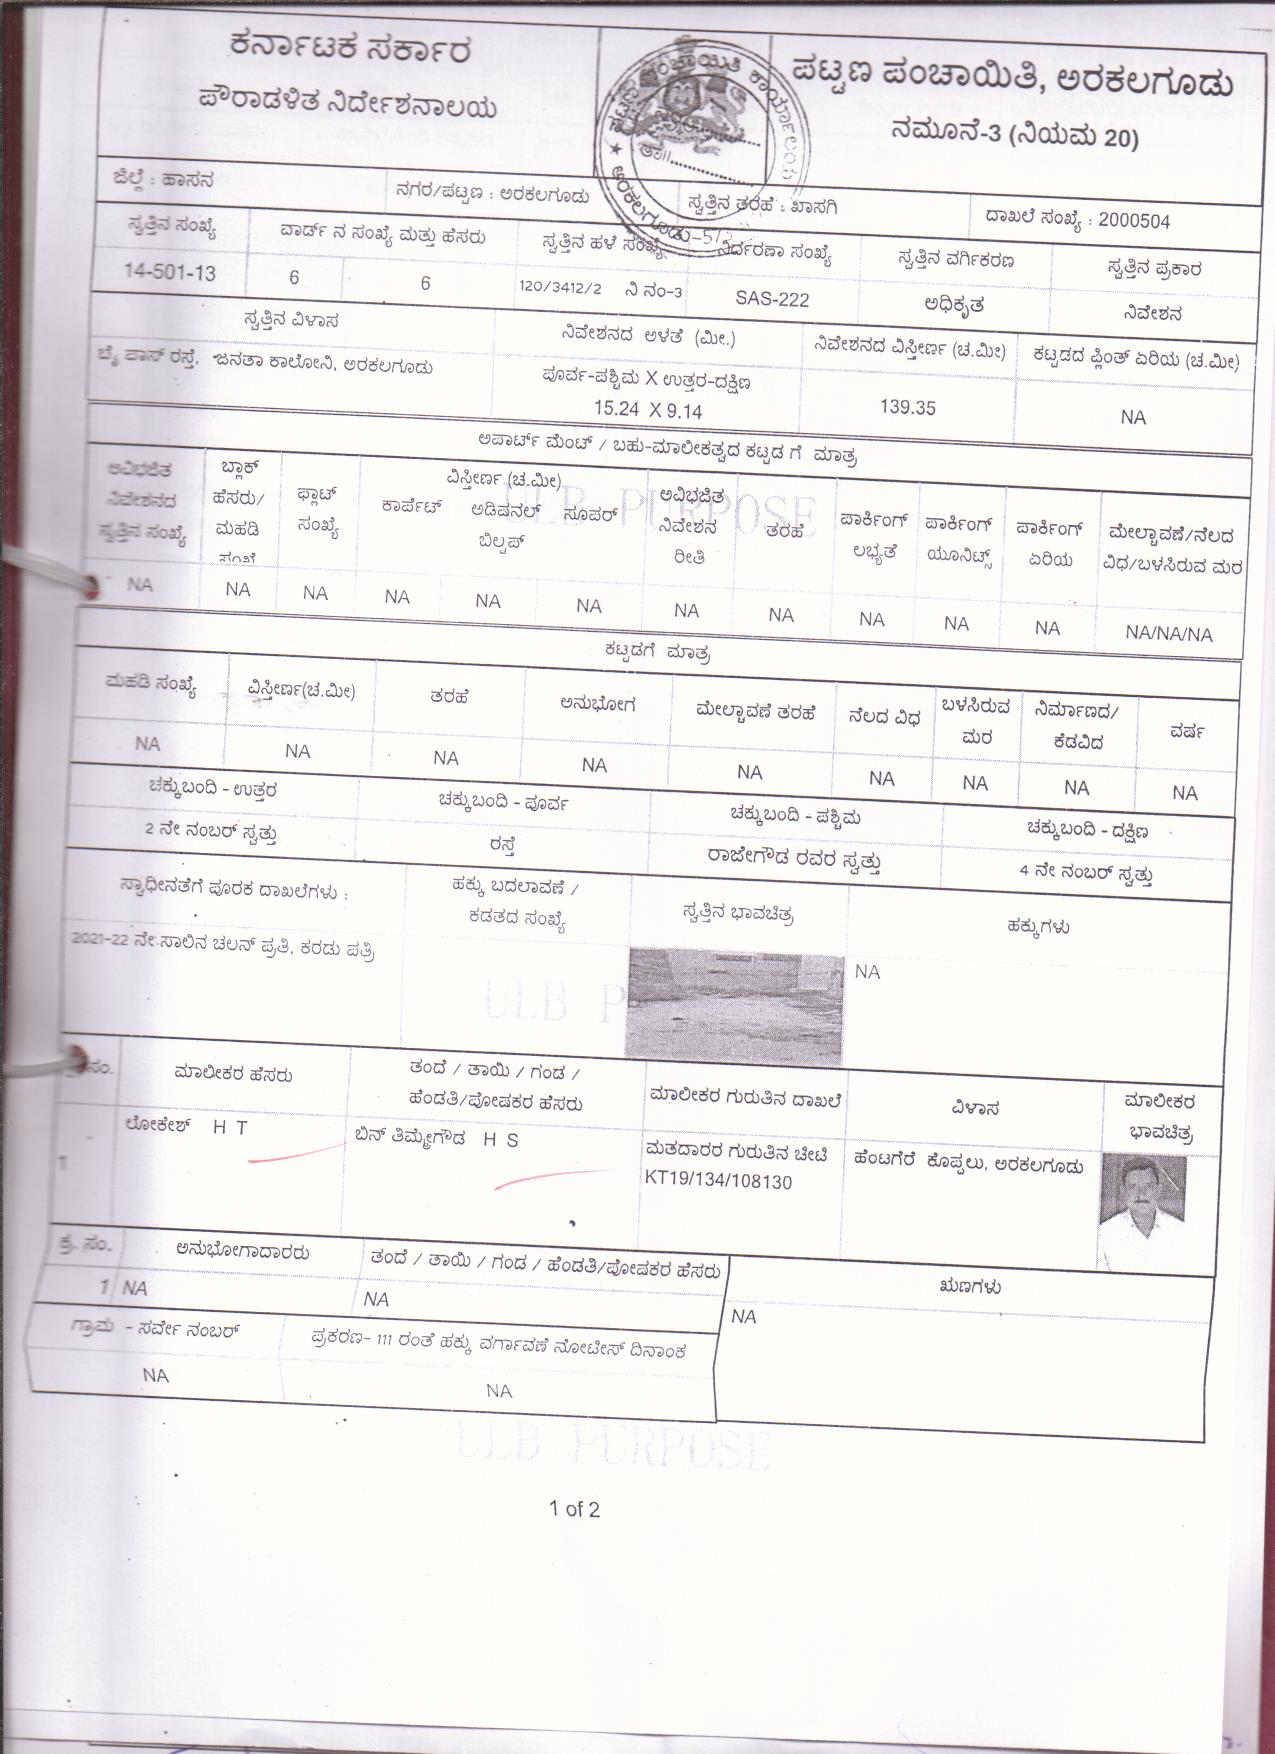 ಕರ್ನಾಟಕ ಸರ್ಕಾರ
ಪೌರಾಡಳಿತ ನಿರ್ದೇಶನಾಲಯ
ಪಟ್ಟಣ ಪಂಚಾಯಿತಿ, ಅರಕಲಗೂಡು
ನಮೂನೆ-3 (ನಿಯಮ 20)
ಪಟ್ಟಣ ಪಂಚಾಯಿತಿ ಕಾರ್ಯಾಲಯ ★ ಅರಕಲಗೂಡು
ಜಿಲ್ಲೆ : ಹಾಸನ
ನಗರ/ಪಟ್ಟಣ : ಅರಕಲಗೂಡು
ಸ್ವತ್ತಿನ ತರಹೆ : ಖಾಸಗಿ
ದಾಖಲೆ ಸಂಖ್ಯೆ : 2000504
ಸ್ವತ್ತಿನ ಸಂಖ್ಯೆ ವಾರ್ಡ್ ನ ಸಂಖ್ಯೆ ಮತ್ತು ಹೆಸರು ಸ್ವತ್ತಿನ ಹಳೆ ಸಂಖ್ಯೆ ನಿರ್ದರಣಾ ಸಂಖ್ಯೆ ಸ್ವತ್ತಿನ ವರ್ಗಿಕರಣ ಸ್ವತ್ತಿನ ಪ್ರಕಾರ
14-501-13 6 6 120/3412/2 ನಿ ನಂ-3 SAS-222 ಅಧಿಕೃತ ನಿವೇಶನ
ಸ್ವತ್ತಿನ ವಿಳಾಸ ನಿವೇಶನದ ಅಳತೆ (ಮೀ.) ನಿವೇಶನದ ವಿಸ್ತೀರ್ಣ (ಚ.ಮೀ) ಕಟ್ಟಡದ ಪ್ಲಿಂತ್ ಏರಿಯ (ಚ.ಮೀ)
ಬೈ ಪಾಸ್ ರಸ್ತೆ, ಜನತಾ ಕಾಲೋನಿ, ಅರಕಲಗೂಡು ಪೂರ್ವ-ಪಶ್ಚಿಮ X ಉತ್ತರ-ದಕ್ಷಿಣ
15.24 X 9.14 139.35 NA
ಅಪಾರ್ಟ್ ಮೆಂಟ್ / ಬಹು-ಮಾಲೀಕತ್ವದ ಕಟ್ಟಡ ಗೆ ಮಾತ್ರ
ಅವಿಭಜಿತ
ನಿವೇಶನದ
ಸ್ವತ್ತಿನ ಸಂಖ್ಯೆ
ಬ್ಲಾಕ್
ಹೆಸರು/
ಮಹಡಿ
ಸಂಖ್ಯೆ
ಫ್ಲಾಟ್
ಸಂಖ್ಯೆ
ವಿಸ್ತೀರ್ಣ (ಚ.ಮೀ)
ಕಾರ್ಪೆಟ್ ಅಡಿಷನಲ್ ಸೂಪರ್
ಬಿಲ್ಟಪ್
ಅವಿಭಜಿತ
ನಿವೇಶನ
ರೀತಿ
ತರಹೆ
ಪಾರ್ಕಿಂಗ್
ಲಭ್ಯತೆ
ಪಾರ್ಕಿಂಗ್
ಯೂನಿಟ್ಸ್
ಪಾರ್ಕಿಂಗ್
ಏರಿಯ
ಮೇಲ್ಚಾವಣೆ/ನೆಲದ
ವಿಧ/ಬಳಸಿರುವ ಮರ
ULB PURPOSE
NA NA NA NA NA NA NA NA NA NA NA NA/NA/NA
ಕಟ್ಟಡಗೆ ಮಾತ್ರ
ಮಹಡಿ ಸಂಖ್ಯೆ ವಿಸ್ತೀರ್ಣ(ಚ.ಮೀ) ತರಹೆ ಅನುಭೋಗ ಮೇಲ್ಚಾವಣೆ ತರಹೆ ನೆಲದ ವಿಧ
ಬಳಸಿರುವ
ಮರ
ನಿರ್ಮಾಣದ/
ಕೆಡವಿದ
ವರ್ಷ
NA NA NA NA NA NA NA NA NA
ಚಕ್ಕುಬಂದಿ - ಉತ್ತರ ಚಕ್ಕುಬಂದಿ - ಪೂರ್ವ ಚಕ್ಕುಬಂದಿ - ಪಶ್ಚಿಮ ಚಕ್ಕುಬಂದಿ - ದಕ್ಷಿಣ
2 ನೇ ನಂಬರ್ ಸ್ವತ್ತು ರಸ್ತೆ ರಾಜೇಗೌಡ ರವರ ಸ್ವತ್ತು 4 ನೇ ನಂಬರ್ ಸ್ವತ್ತು
ಸ್ವಾಧೀನತೆಗೆ ಪೂರಕ ದಾಖಲೆಗಳು :
ಹಕ್ಕು ಬದಲಾವಣೆ /
ಕಡತದ ಸಂಖ್ಯೆ
ಸ್ವತ್ತಿನ ಭಾವಚಿತ್ರ
ಹಕ್ಕುಗಳು
2021-22 ನೇ ಸಾಲಿನ ಚಲನ್ ಪ್ರತಿ, ಕರಡು ಪತ್ರಿ
NA
ULB P
ಮಾಲೀಕರ ಹೆಸರು
ತಂದೆ / ತಾಯಿ / ಗಂಡ /
ಹೆಂಡತಿ/ಪೋಷಕರ ಹೆಸರು
ಮಾಲೀಕರ ಗುರುತಿನ ದಾಖಲೆ
ವಿಳಾಸ
ಮಾಲೀಕರ
ಭಾವಚಿತ್ರ
1 ಲೋಕೇಶ್ H T ಬಿನ್ ತಿಮ್ಮೇಗೌಡ H S
ಮತದಾರರ ಗುರುತಿನ ಚೀಟಿ
KT19/134/108130
ಹೆಂಟಗೆರೆ ಕೊಪ್ಪಲು, ಅರಕಲಗೂಡು
ಕ್ರ. ಸಂ. ಅನುಭೋಗಾದಾರರು ತಂದೆ / ತಾಯಿ / ಗಂಡ / ಹೆಂಡತಿ/ಪೋಷಕರ ಹೆಸರು ಋಣಗಳು
1 NA NA NA
ಗ್ರಾಮ - ಸರ್ವೇ ನಂಬರ್ ಪ್ರಕರಣ- 111 ರಂತೆ ಹಕ್ಕು ವರ್ಗಾವಣೆ ನೋಟೀಸ್ ದಿನಾಂಕ
NA NA
ULB PURPOSE
1 of 2